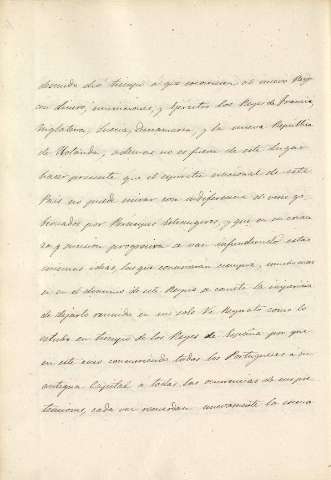 demida dió tiempo a que socorriesen al nuevo Rey
con dinero, municiones, y Ejércitos los Reyes de Francia,
Inglaterra, Suecia, Dinamarca, y la nueva Republica
de Holanda; ademas no es fuera de este lugar
hacer presente que el espiritu nacional de este
Pais no puede mirar con indiferencia el verse go-
bernados por Principes Extrangeros, y que en su
y sucesion progresiva se van infundiendo estas
mismas ideas, las que conservaran siempre,
si en el dominio de este Reyno se comete la injusticia
de dejarlo reunido en un solo Vi-Reynato como lo
estubo en tiempo de los Reyes de España por que
en este caso concurriendo todos los Portugueses a su
antigua Capital a todas las ocurrencias de sus pre-
tensiones, cada vez recuerdan nuevamente la